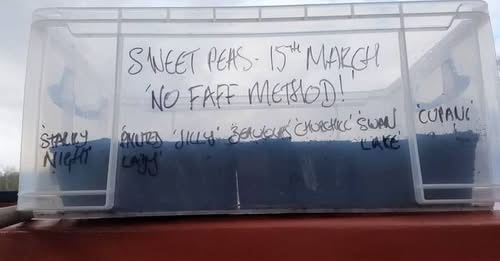 SWEET PEAS - 15TH MARCH
'NO FAFF METHOD!'
'STARRY NIGHT' PAINTED LADY 'JILLY' 'CHURCHILL' 'SWAN LAKE' 'CUPANI'